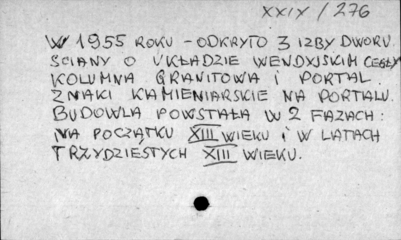 XXIX / 276
W 1955 ROKU - ODKRYTO 3 IZBY DWORU.
SCIANY O UKŁADZIE WENDYJSKIM CEGŁY
KOLUMNA GRANITOWA i PORTAL.
ZNAKI KAMIENIARSKIE NA PORTALU.
BUDOWLA POWSTAŁA W 2 FAZACH:
NA POCZĄTKU XIII WIEKU i W LATACH
TRZYDZIESTYCH XIII WIEKU.